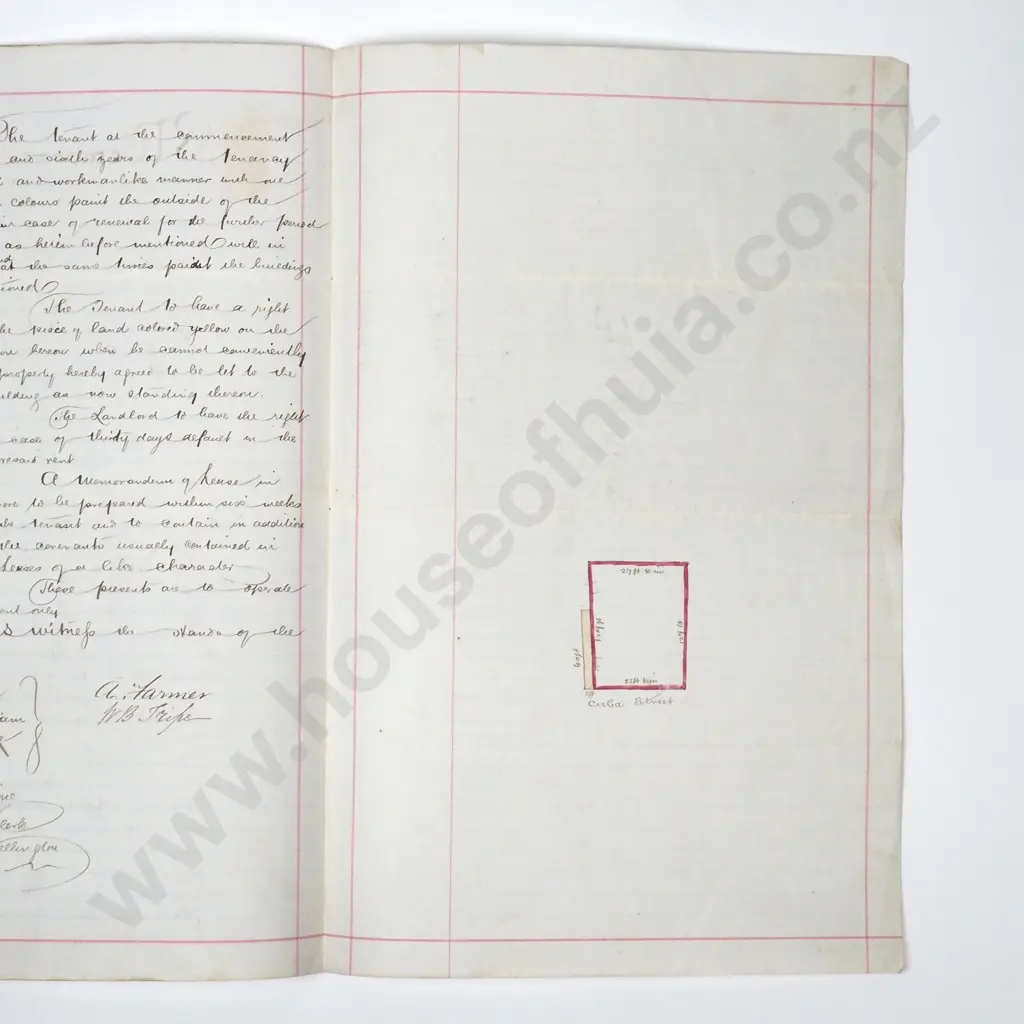 The tenant at the commencement
and sixth years of the Tenancy
and workmanlike manner with one
colours paint the outside of the
in case of renewal for the further period
as herein before mentioned will in
at the same times paint the buildings
tioned
The Tenant to have a right
the piece of land colored yellow on the
hereon when he cannot conveniently
property hereby agreed to be let to the
uilding as now standing thereon.
The Landlord to have the right
case of thirty days default in the
resaid rent
A Memorandum of Lease in
to be prepared within six weeks
tenant and to contain in addition
the covenants usually contained in
Leases of a like character
These presents are to operate
ent only
witness the Hands of the
A. Farmer
W B Tripe
lerk
ellington
Cuba Street
www.houseofhuia.co.nz